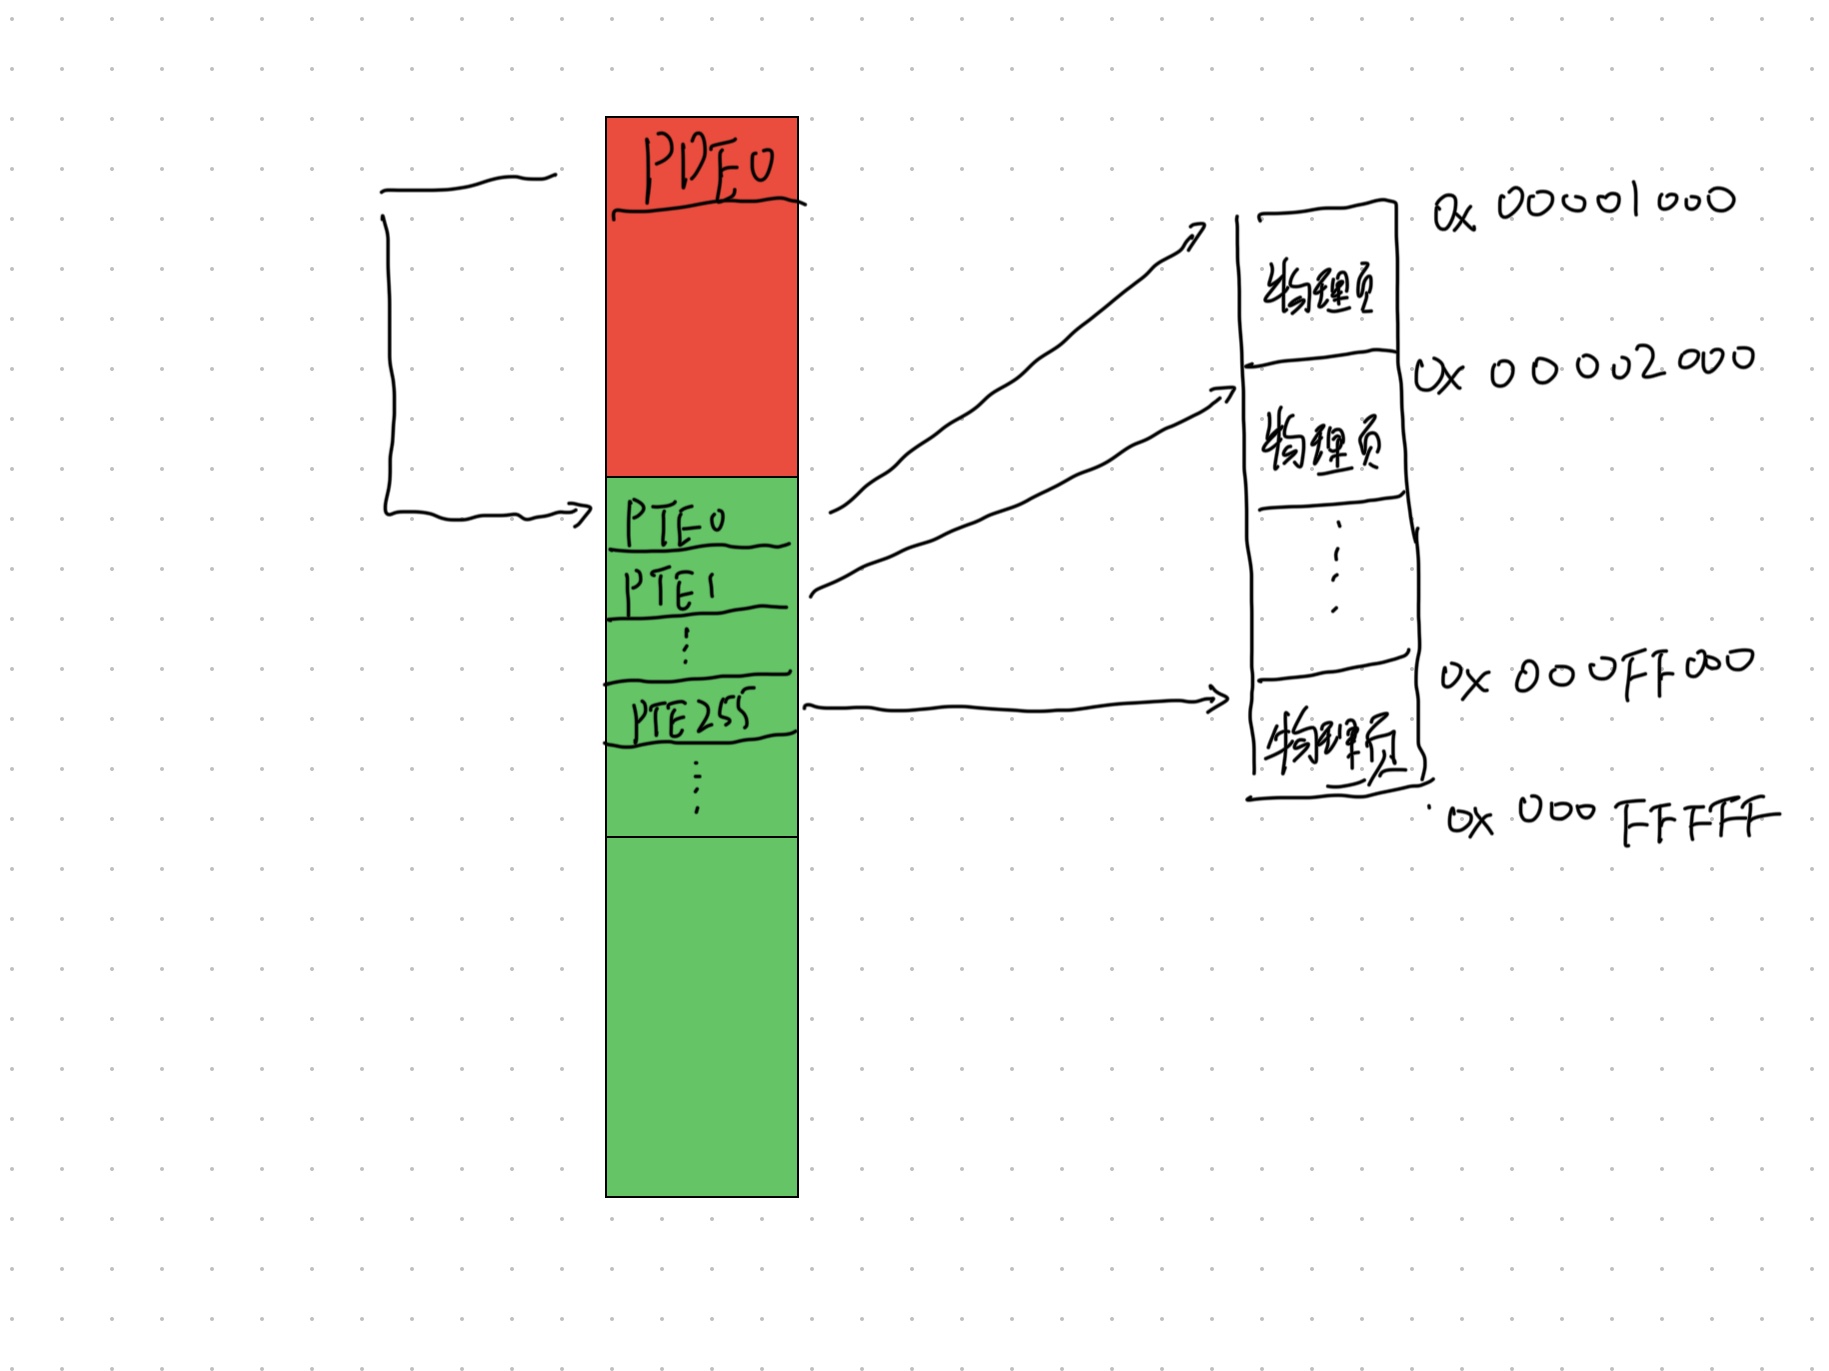 PDE0
PTE0
PTE1
⋮
PTE255
⋮
0x 00001000
物理页
0x 00002000
物理页
⋮
0x 000FF000
物理页
0x 000FFFFF